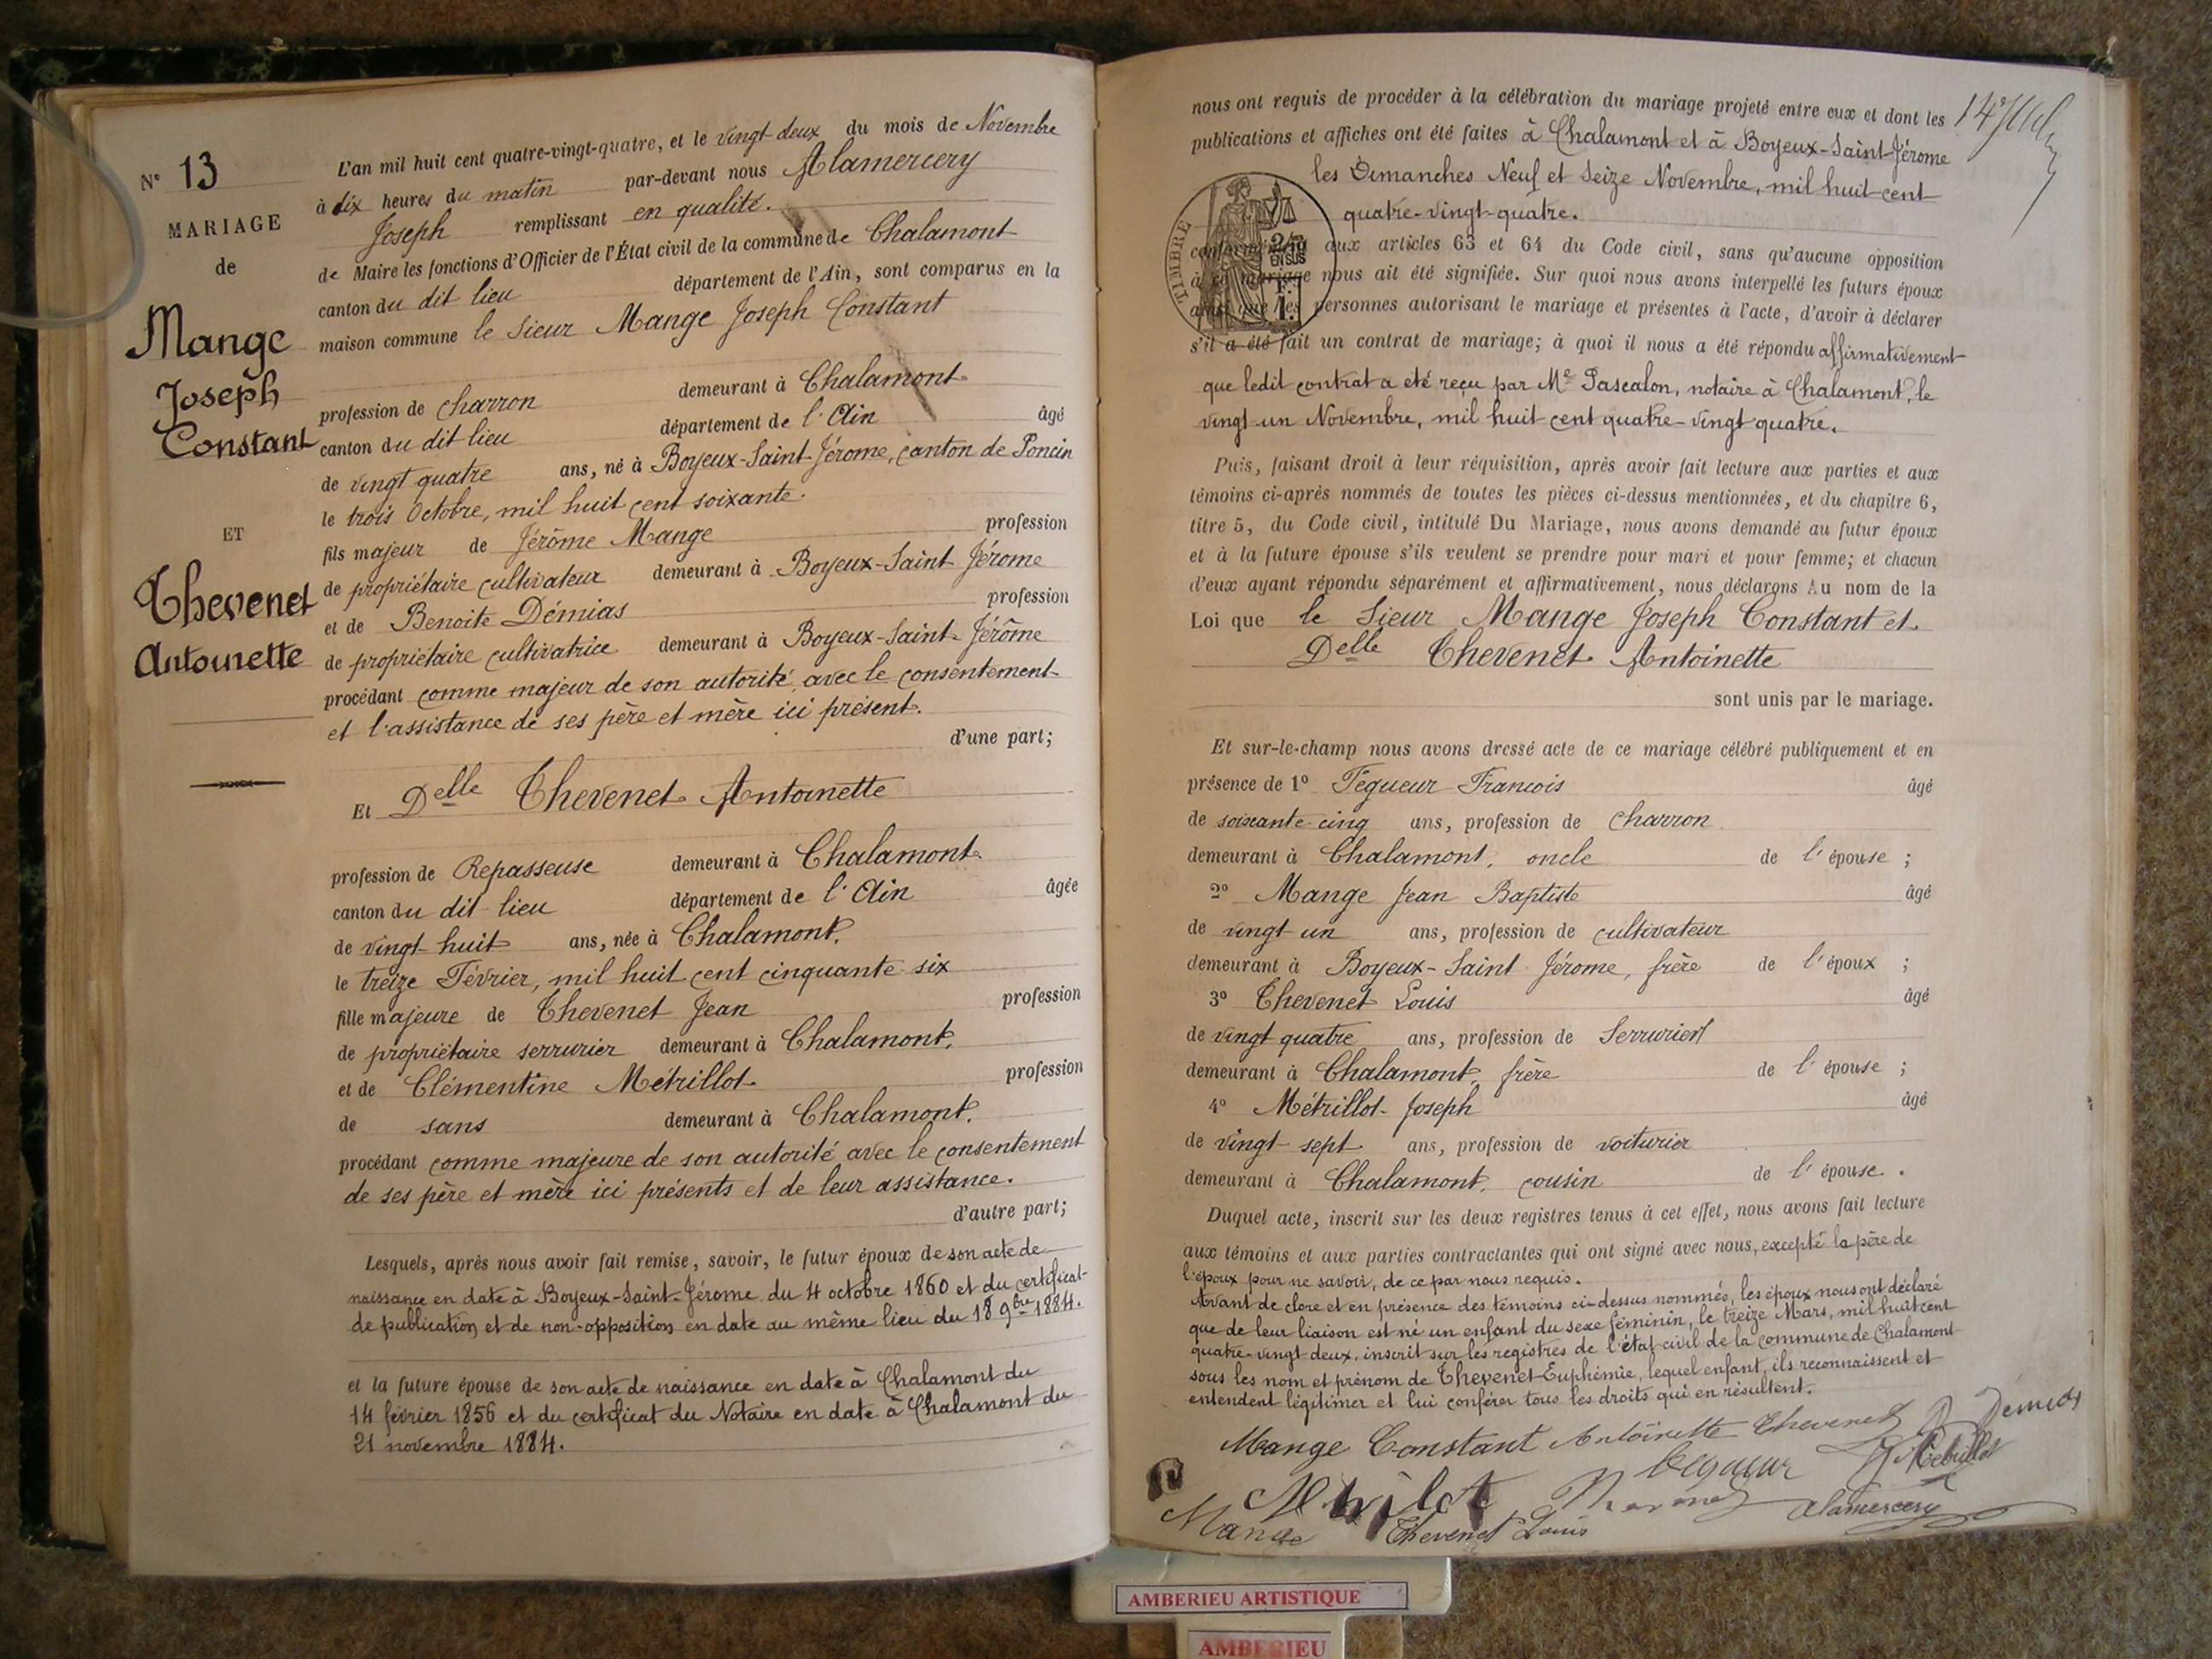 N° 13
MARIAGE
de
Mange
Joseph
Constant
ET
Thevenet
Antoinette
L'an mil huit cent quatre-vingt-quatre, et le vingt deux du mois de Novembre
à dix heures du matin par-devant nous Alamercery
Joseph remplissant en qualité.
de Maire les fonctions d'Officier de l'État civil de la commune de Chalamont
canton du dit lieu département de l'Ain, sont comparus en la
maison commune le Sieur Mange Joseph Constant
profession de charron demeurant à Chalamont
canton du dit lieu département de l'Ain âgé
de vingt quatre ans, né à Boyeux-Saint-Jérome, canton de Poncin
le trois Octobre, mil huit cent soixante.
fils majeur de Jérôme Mange profession
de propriétaire cultivateur demeurant à Boyeux-Saint-Jérome
et de Benoite Démias profession
de propriétaire cultivatrice demeurant à Boyeux-Saint-Jérôme
procédant comme majeur de son autorité, avec le consentement
et l'assistance de ses père et mère ici présent.
d'une part;
Et Delle Thevenet Antoinette
profession de Repasseuse demeurant à Chalamont
canton du dit lieu département de l'Ain âgée
de vingt huit ans, née à Chalamont,
le treize Février, mil huit cent cinquante six
fille majeure de Thevenet Jean profession
de propriétaire serrurier demeurant à Chalamont,
et de Clémentine Métrillot profession
de sans demeurant à Chalamont,
procédant comme majeure de son autorité avec le consentement
de ses père et mère ici présents et de leur assistance.
d'autre part;
Lesquels, après nous avoir fait remise, savoir, le futur époux de son acte de
naissance en date à Boyeux-Saint-Jérome du 4 octobre 1860 et du certificat
de publication et de non-opposition en date au même lieu du 18 9bre 1884.
et la future épouse de son acte de naissance en date à Chalamont du
14 février 1856 et du certificat du Notaire en date à Chalamont du
21 novembre 1884.
nous ont requis de procéder à la célébration du mariage projeté entre eux et dont les
publications et affiches ont été faites à Chalamont et à Boyeux-Saint-Jérome
les Dimanches Neuf et Seize Novembre, mil huit cent
quatre-vingt-quatre.
TIMBRE
conformément aux articles 63 et 64 du Code civil, sans qu'aucune opposition
à ce mariage nous ait été signifiée. Sur quoi nous avons interpellé les futurs époux
ainsi que les personnes autorisant le mariage et présentes à l'acte, d'avoir à déclarer
s'il a été fait un contrat de mariage; à quoi il nous a été répondu affirmativement
que ledit contrat a été reçu par Me Pascalon, notaire à Chalamont, le
vingt-un Novembre, mil huit cent quatre-vingt quatre.
Puis, faisant droit à leur réquisition, après avoir fait lecture aux parties et aux
témoins ci-après nommés de toutes les pièces ci-dessus mentionnées, et du chapitre 6,
titre 5, du Code civil, intitulé Du Mariage, nous avons demandé au futur époux
et à la future épouse s'ils veulent se prendre pour mari et pour femme; et chacun
d'eux ayant répondu séparément et affirmativement, nous déclarons Au nom de la
Loi que le Sieur Mange Joseph Constant et
Delle Thevenet Antoinette
sont unis par le mariage.
Et sur-le-champ nous avons dressé acte de ce mariage célébré publiquement et en
présence de 1° Tégueur Francois âgé
de soixante-cinq ans, profession de Charron
demeurant à Chalamont, oncle de l'épouse ;
2° Mange Jean Baptiste âgé
de vingt un ans, profession de cultivateur
demeurant à Boyeux-Saint-Jérome, frère de l'époux ;
3° Thevenet Louis âgé
de vingt quatre ans, profession de Serrurier
demeurant à Chalamont, frère de l'épouse ;
4° Métrillot Joseph âgé
de vingt sept ans, profession de voiturier
demeurant à Chalamont, cousin de l'épouse.
Duquel acte, inscrit sur les deux registres tenus à cet effet, nous avons fait lecture
aux témoins et aux parties contractantes qui ont signé avec nous, excepté le père de
l'époux pour ne savoir, de ce par nous requis.
Avant de clore et en présence des témoins ci-dessus nommés, les époux nous ont déclaré
que de leur liaison est né un enfant du sexe féminin, le treize Mars, mil huit cent
quatre-vingt deux, inscrit sur les registres de l'état civil de la commune de Chalamont
sous les nom et prénom de Thevenet Euphémie, lequel enfant, ils reconnaissent et
entendent légitimer et lui conférer tous les droits qui en résultent.
Mange Constant Antoinette Thevenet B Démias
Mange Thevenet Louis Alamercery
AMBERIEU ARTISTIQUE
AMBERIEU